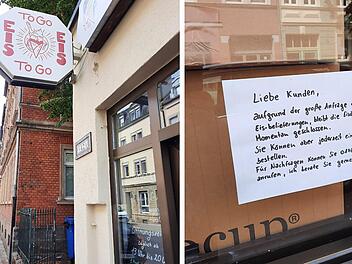 To Go
EIS
EIS
To Go
Öffnungszeit
13 Uhr bis 20
Liebe Kunden,
aufgrund der große Anfrage
Eisbelieferungen, bleibt die
Momentan geschlossen.
Sie können aber jederzeit
bestellen.
Für Nachfragen können Sie
anrufen, ich berate Sie
ecup®